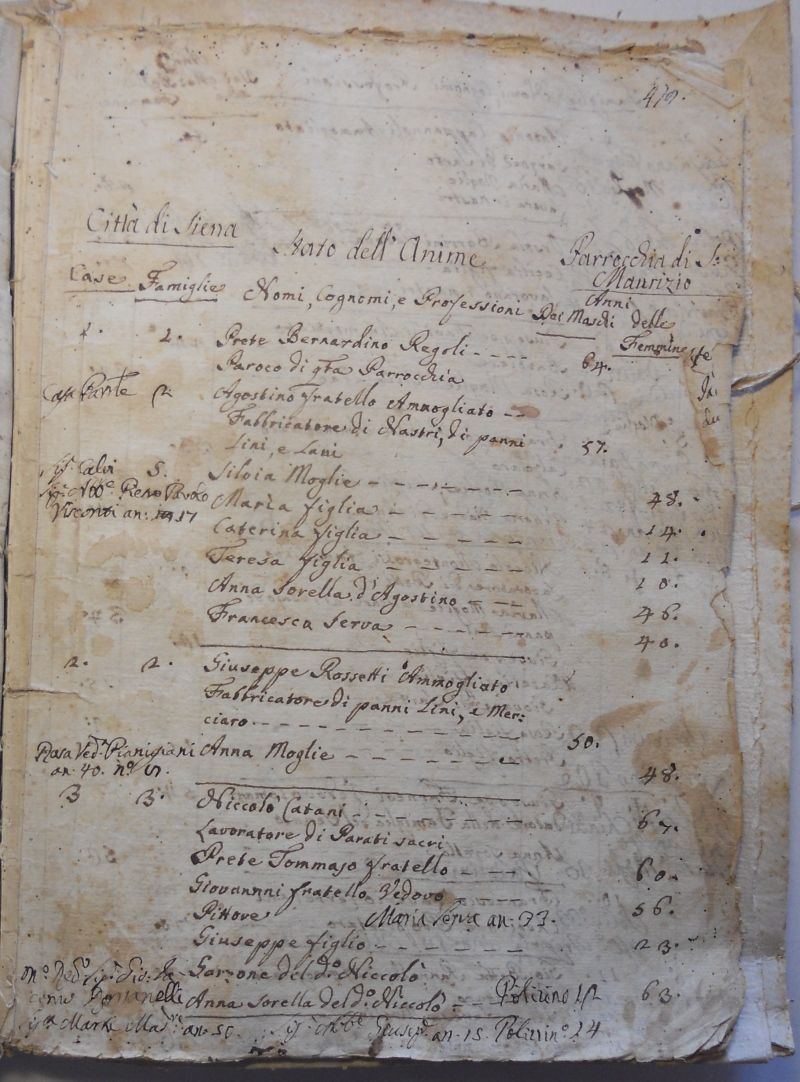 479.
Città di Siena
Stato dell'Anime
Parrocchia di S:
Maurizio
Case Famiglie Nomi, Cognomi, e Professioni Anni
Dei Maschi delle
Femmine
1. 1. Prete Bernardino Regoli 64.
Paroco di qta Parrocchia
2. Agostino fratello Ammogliato
Fabbricatore di Nastri, di panni
Lini, e Lani 57.
5. Silvia Moglie 48.
Visconti an: 17 Maria figlia 14.
Caterina figlia 11.
Teresa figlia 10.
Anna Sorella d'Agostino 46.
Francesca Serva 40.
2. 2. Giuseppe Rossetti Ammogliato
Fabbricatore di panni Lini, e Mer:
ciaro 50.
Rosa Ved. Pianigiani Anna Moglie 48.
an. 40. no
3 3. Niccolò Catani 67.
Lavoratore di Parati sacri
Prete Tommaso fratello 60.
Giovannni fratello Vedovo 56.
Pittore Maria Serva an. 33.
Giuseppe figlio 23.
Garzone del do Niccolò
Anna Sorella del do Niccolò 63.
an. 50. an. 15